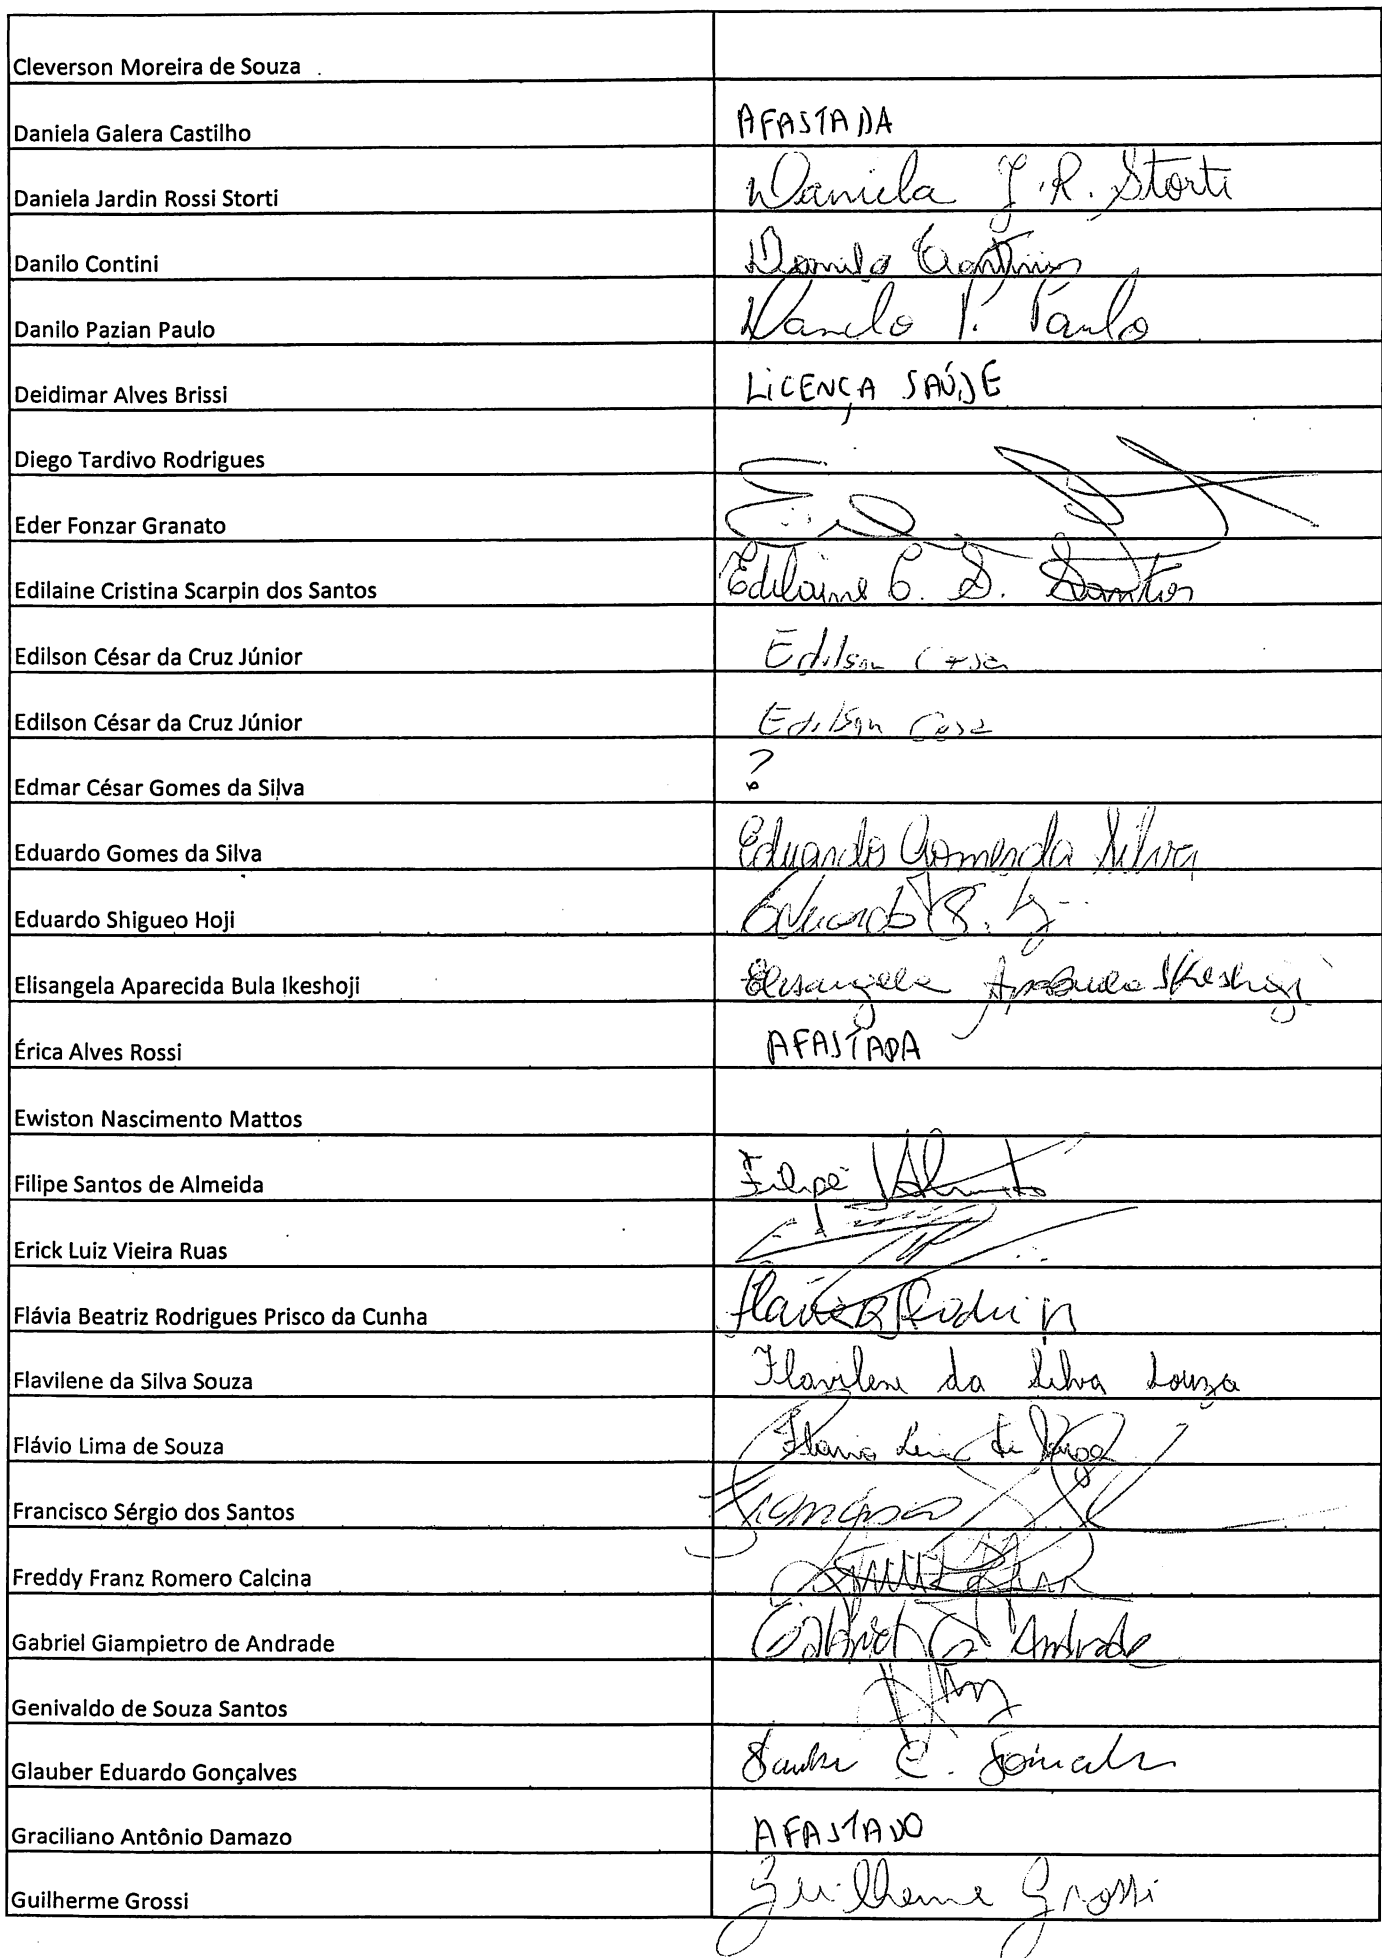 Cleverson Moreira de Souza
Daniela Galera Castilho AFASTADA
Daniela Jardin Rossi Storti Daniela J. R. Storti
Danilo Contini Danilo Contini
Danilo Pazian Paulo Danilo P. Paulo
Deidimar Alves Brissi LICENÇA SAÚDE
Diego Tardivo Rodrigues
Eder Fonzar Granato
Edilaine Cristina Scarpin dos Santos Edilaine C. S. Santos
Edilson César da Cruz Júnior Edilson
Edilson César da Cruz Júnior Edilson
Edmar César Gomes da Silva ?
Eduardo Gomes da Silva Eduardo Gomes da Silva
Eduardo Shigueo Hoji Eduardo S.
Elisangela Aparecida Bula Ikeshoji Elisangela Ap Bula Ikeshoji
Érica Alves Rossi AFASTADA
Ewiston Nascimento Mattos
Filipe Santos de Almeida Filipe
Erick Luiz Vieira Ruas
Flávia Beatriz Rodrigues Prisco da Cunha Flávia B
Flavilene da Silva Souza Flavilene da Silva Souza
Flávio Lima de Souza Flavio Lima de Souza
Francisco Sérgio dos Santos Francisco
Freddy Franz Romero Calcina
Gabriel Giampietro de Andrade Gabriel G. Andrade
Genivaldo de Souza Santos
Glauber Eduardo Gonçalves E.
Graciliano Antônio Damazo AFASTADO
Guilherme Grossi Guilherme Grossi